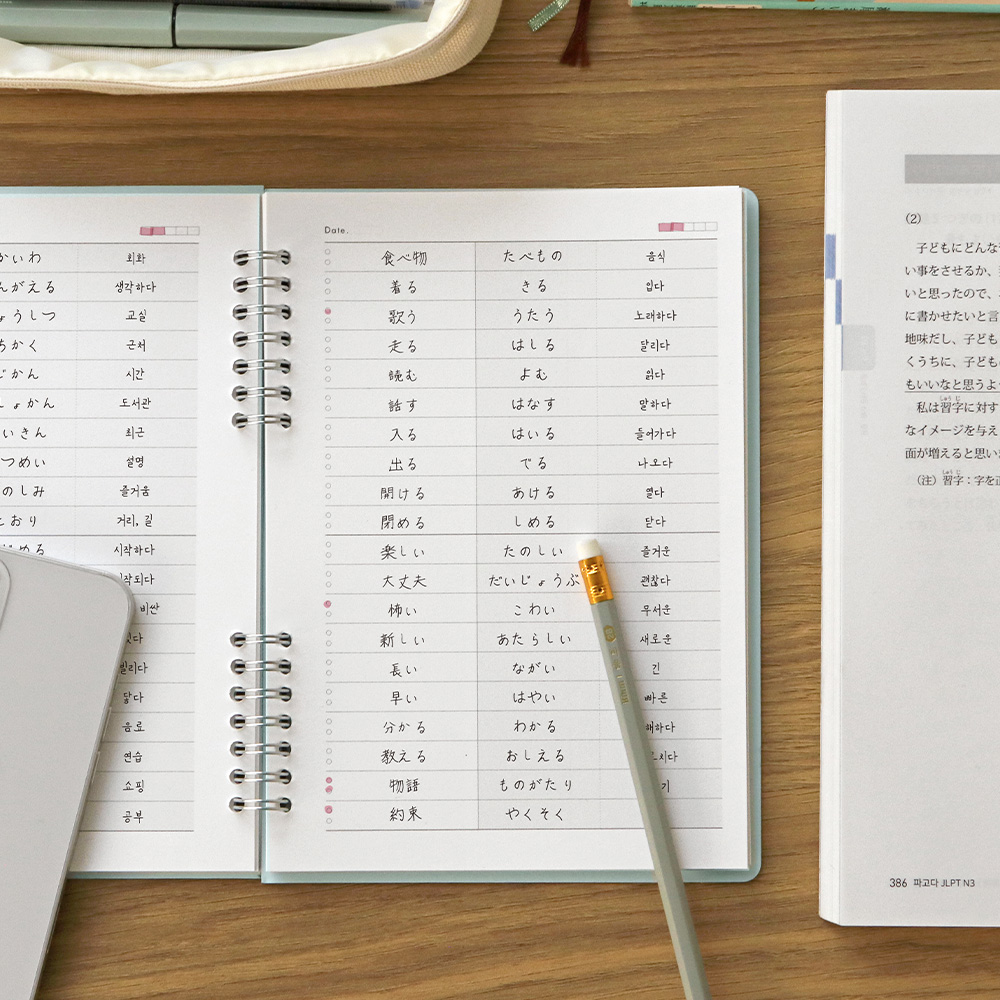 かいわ 회화
んがえる 생각하다
ょうしつ 교실
ちかく 근처
じかん 시간
しょかん 도서관
いきん 최근
つめい 설명
のしみ 즐거움
とおり 거리, 길
める 시작하다
작되다
비싼
빌리다
닿다
음료
연습
쇼핑
공부
Date.
食べ物 たべもの 음식
着る きる 입다
歌う うたう 노래하다
走る はしる 달리다
読む よむ 읽다
話す はなす 말하다
入る はいる 들어가다
出る でる 나오다
開ける あける 열다
閉める しめる 닫다
楽しい たのしい 즐거운
大丈夫 だいじょうぶ 괜찮다
怖い こわい 무서운
新しい あたらしい 새로운
長い ながい 긴
早い はやい 빠른
分かる わかる 해하다
教える おしえる 치다
物語 ものがたり 기
約束 やくそく
(2)
子どもにどんな
い事をさせるか、
いと思ったので、
に書かせたいと言
地味だし、子ども
くうちに、子ども
もいいなと思うよ
私は習字に対す
なイメージを与え
面が増えると思い
(注) 習字:字を正
386 파고다 JLPT N3